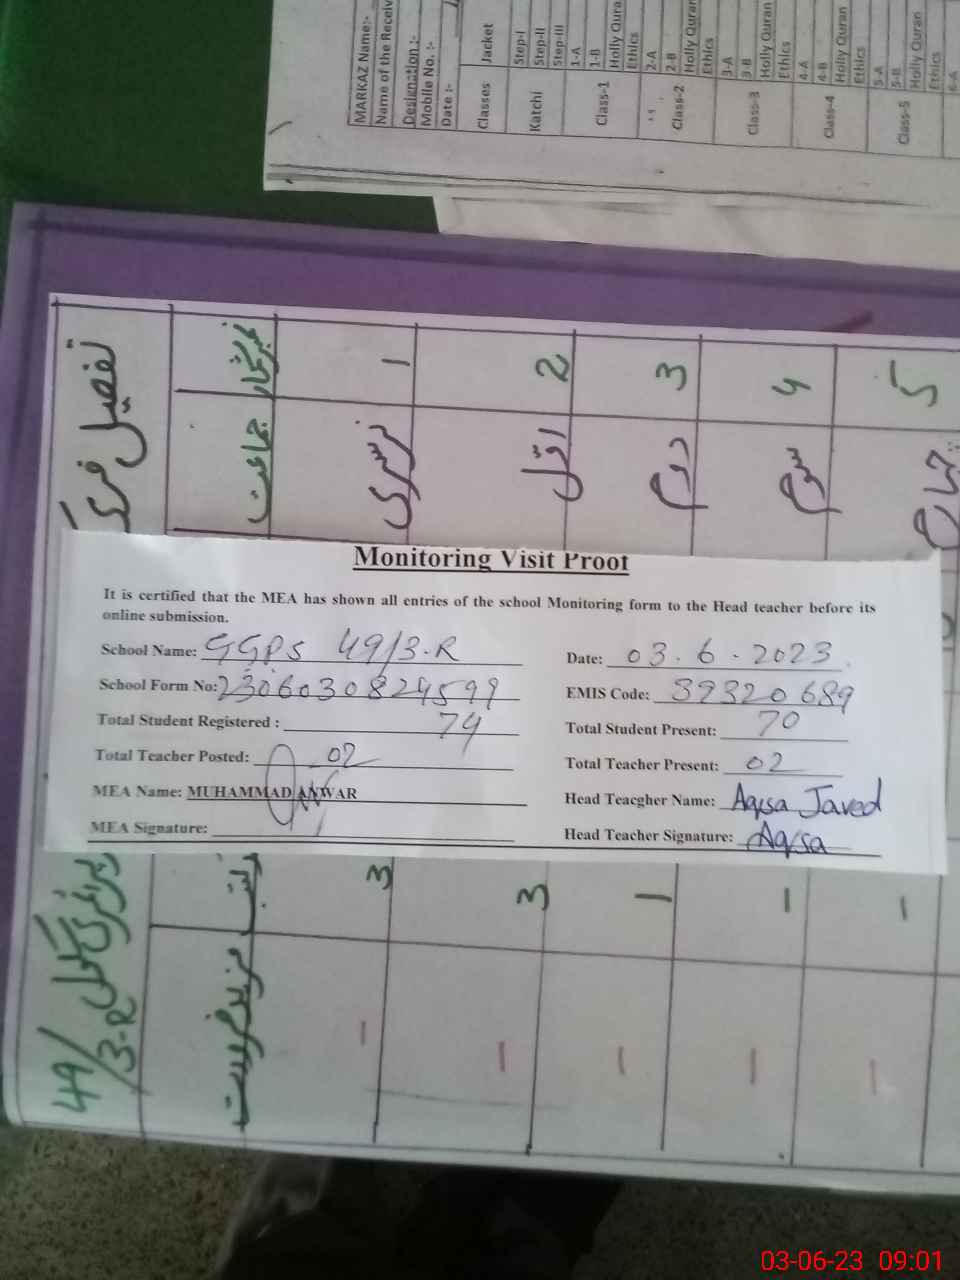 MARKAZ Name:-
Name of the Receiv
Designation :-
Mobile No. :-
Date :-
Classes Jacket
Katchi Step-I
Step-II
Step-III
Class-1 1-A
1-B
Holly Qura
Ethics
Class-2 2-A
2-B
Holly Quran
Ethics
Class-3 3-A
3-B
Holly Quran
Ethics
Class-4 4-A
4-B
Holly Quran
Ethics
Class-5 5-A
5-B
Holly Quran
Ethics
6-A
تفصیل
نمبر شمار جماعت
1 نرسری
2 اول
3 دوم
4 سوم
5 چہارم
Monitoring Visit Proof
It is certified that the MEA has shown all entries of the school Monitoring form to the Head teacher before its
online submission.
School Name: GGPS 49/3-R
Date: 03.6.2023
School Form No: 2306030824599
EMIS Code: 39320689
Total Student Registered : 74
Total Student Present: 70
Total Teacher Posted: 02
Total Teacher Present: 02
MEA Name: MUHAMMAD ANWAR
Head Teacgher Name: Aqsa Javed
MEA Signature:
Head Teacher Signature: Aqsa
49/3-R
3
3
1
-
-
-
-
-
-
-
03-06-23 09:01